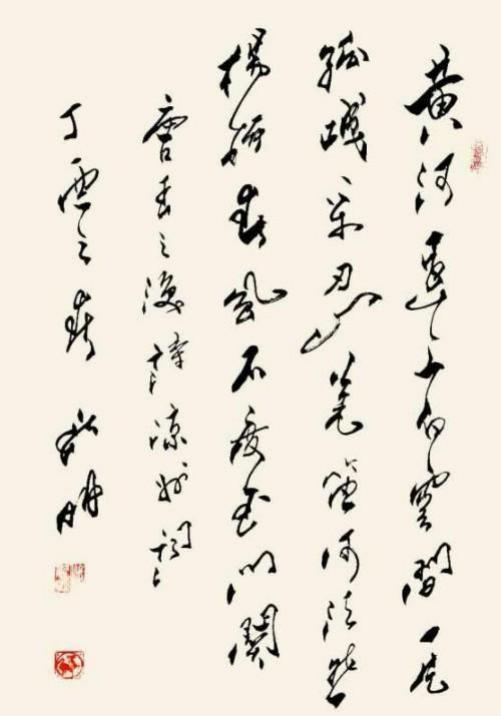 黄河遠上白雲間一片
孤城万仞山羌笛何須怨
楊柳春風不度玉門關
唐王之渙詩涼州詞
丁酉之春 明